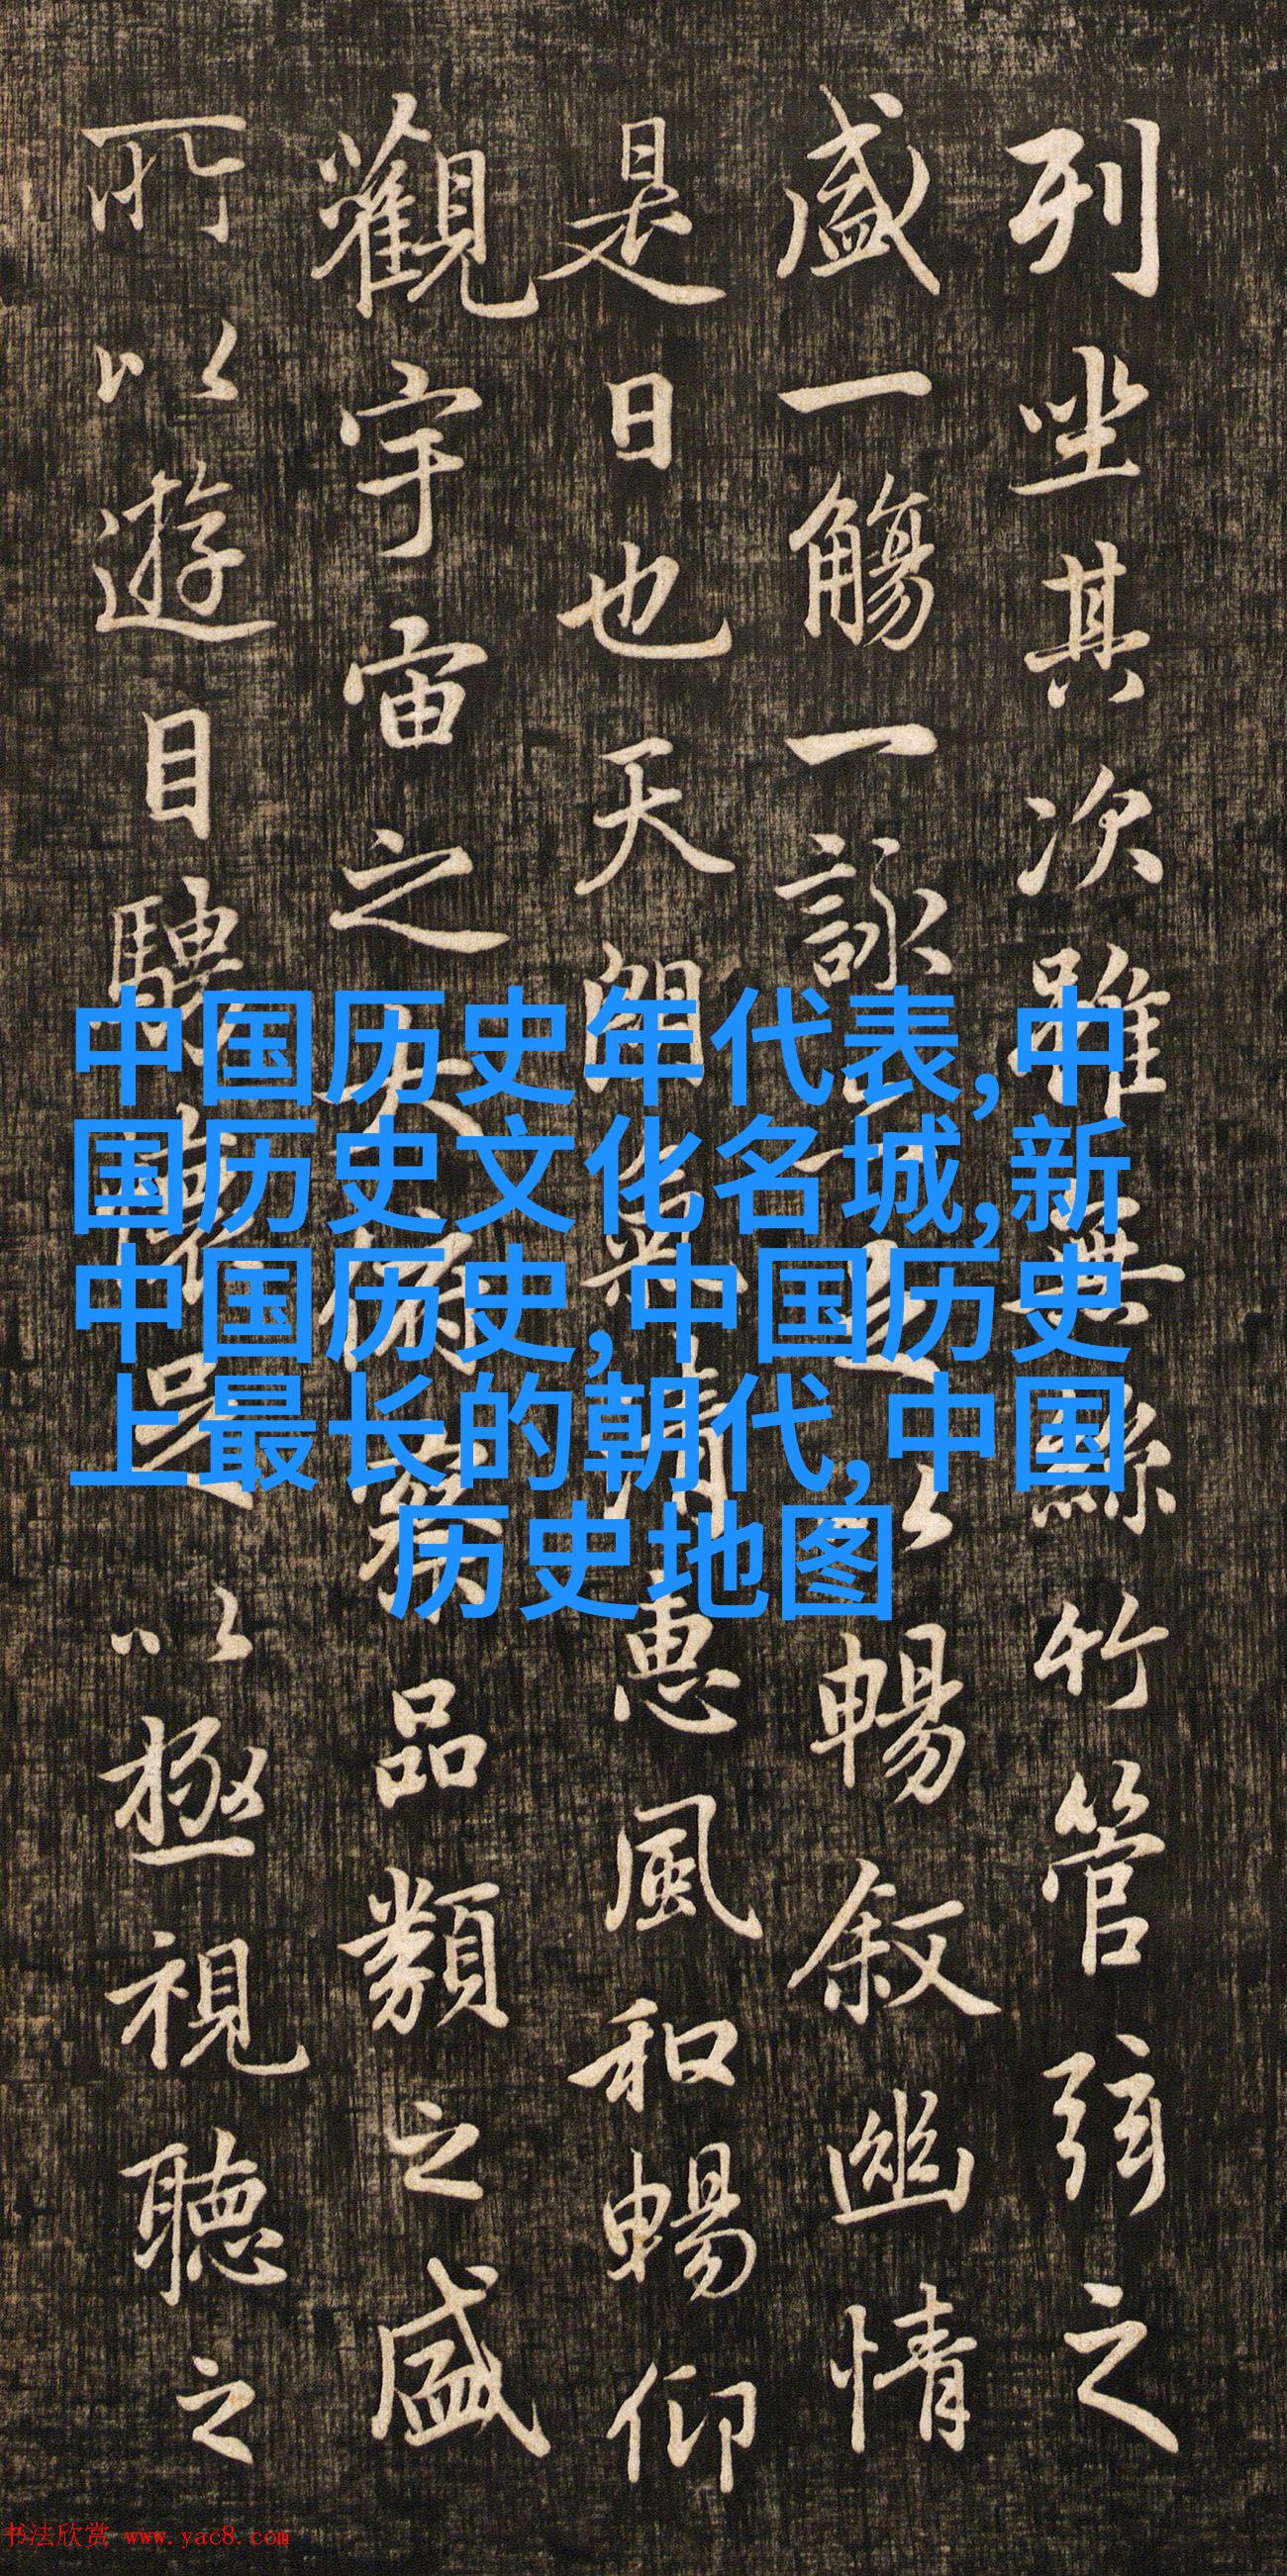 列坐其次雖無絲竹管弦之
盛一觴一詠亦足以暢叙幽情
是日也天朗氣清惠風和暢仰
觀宇宙之大俯察品類之盛
所以遊目騁懷足以極視聽之
中国历史年代表,中
国历史文化名城,新
中国历史,中国历史
上最长的朝代,中国
历史地图
书法欣赏 www.yac8.com